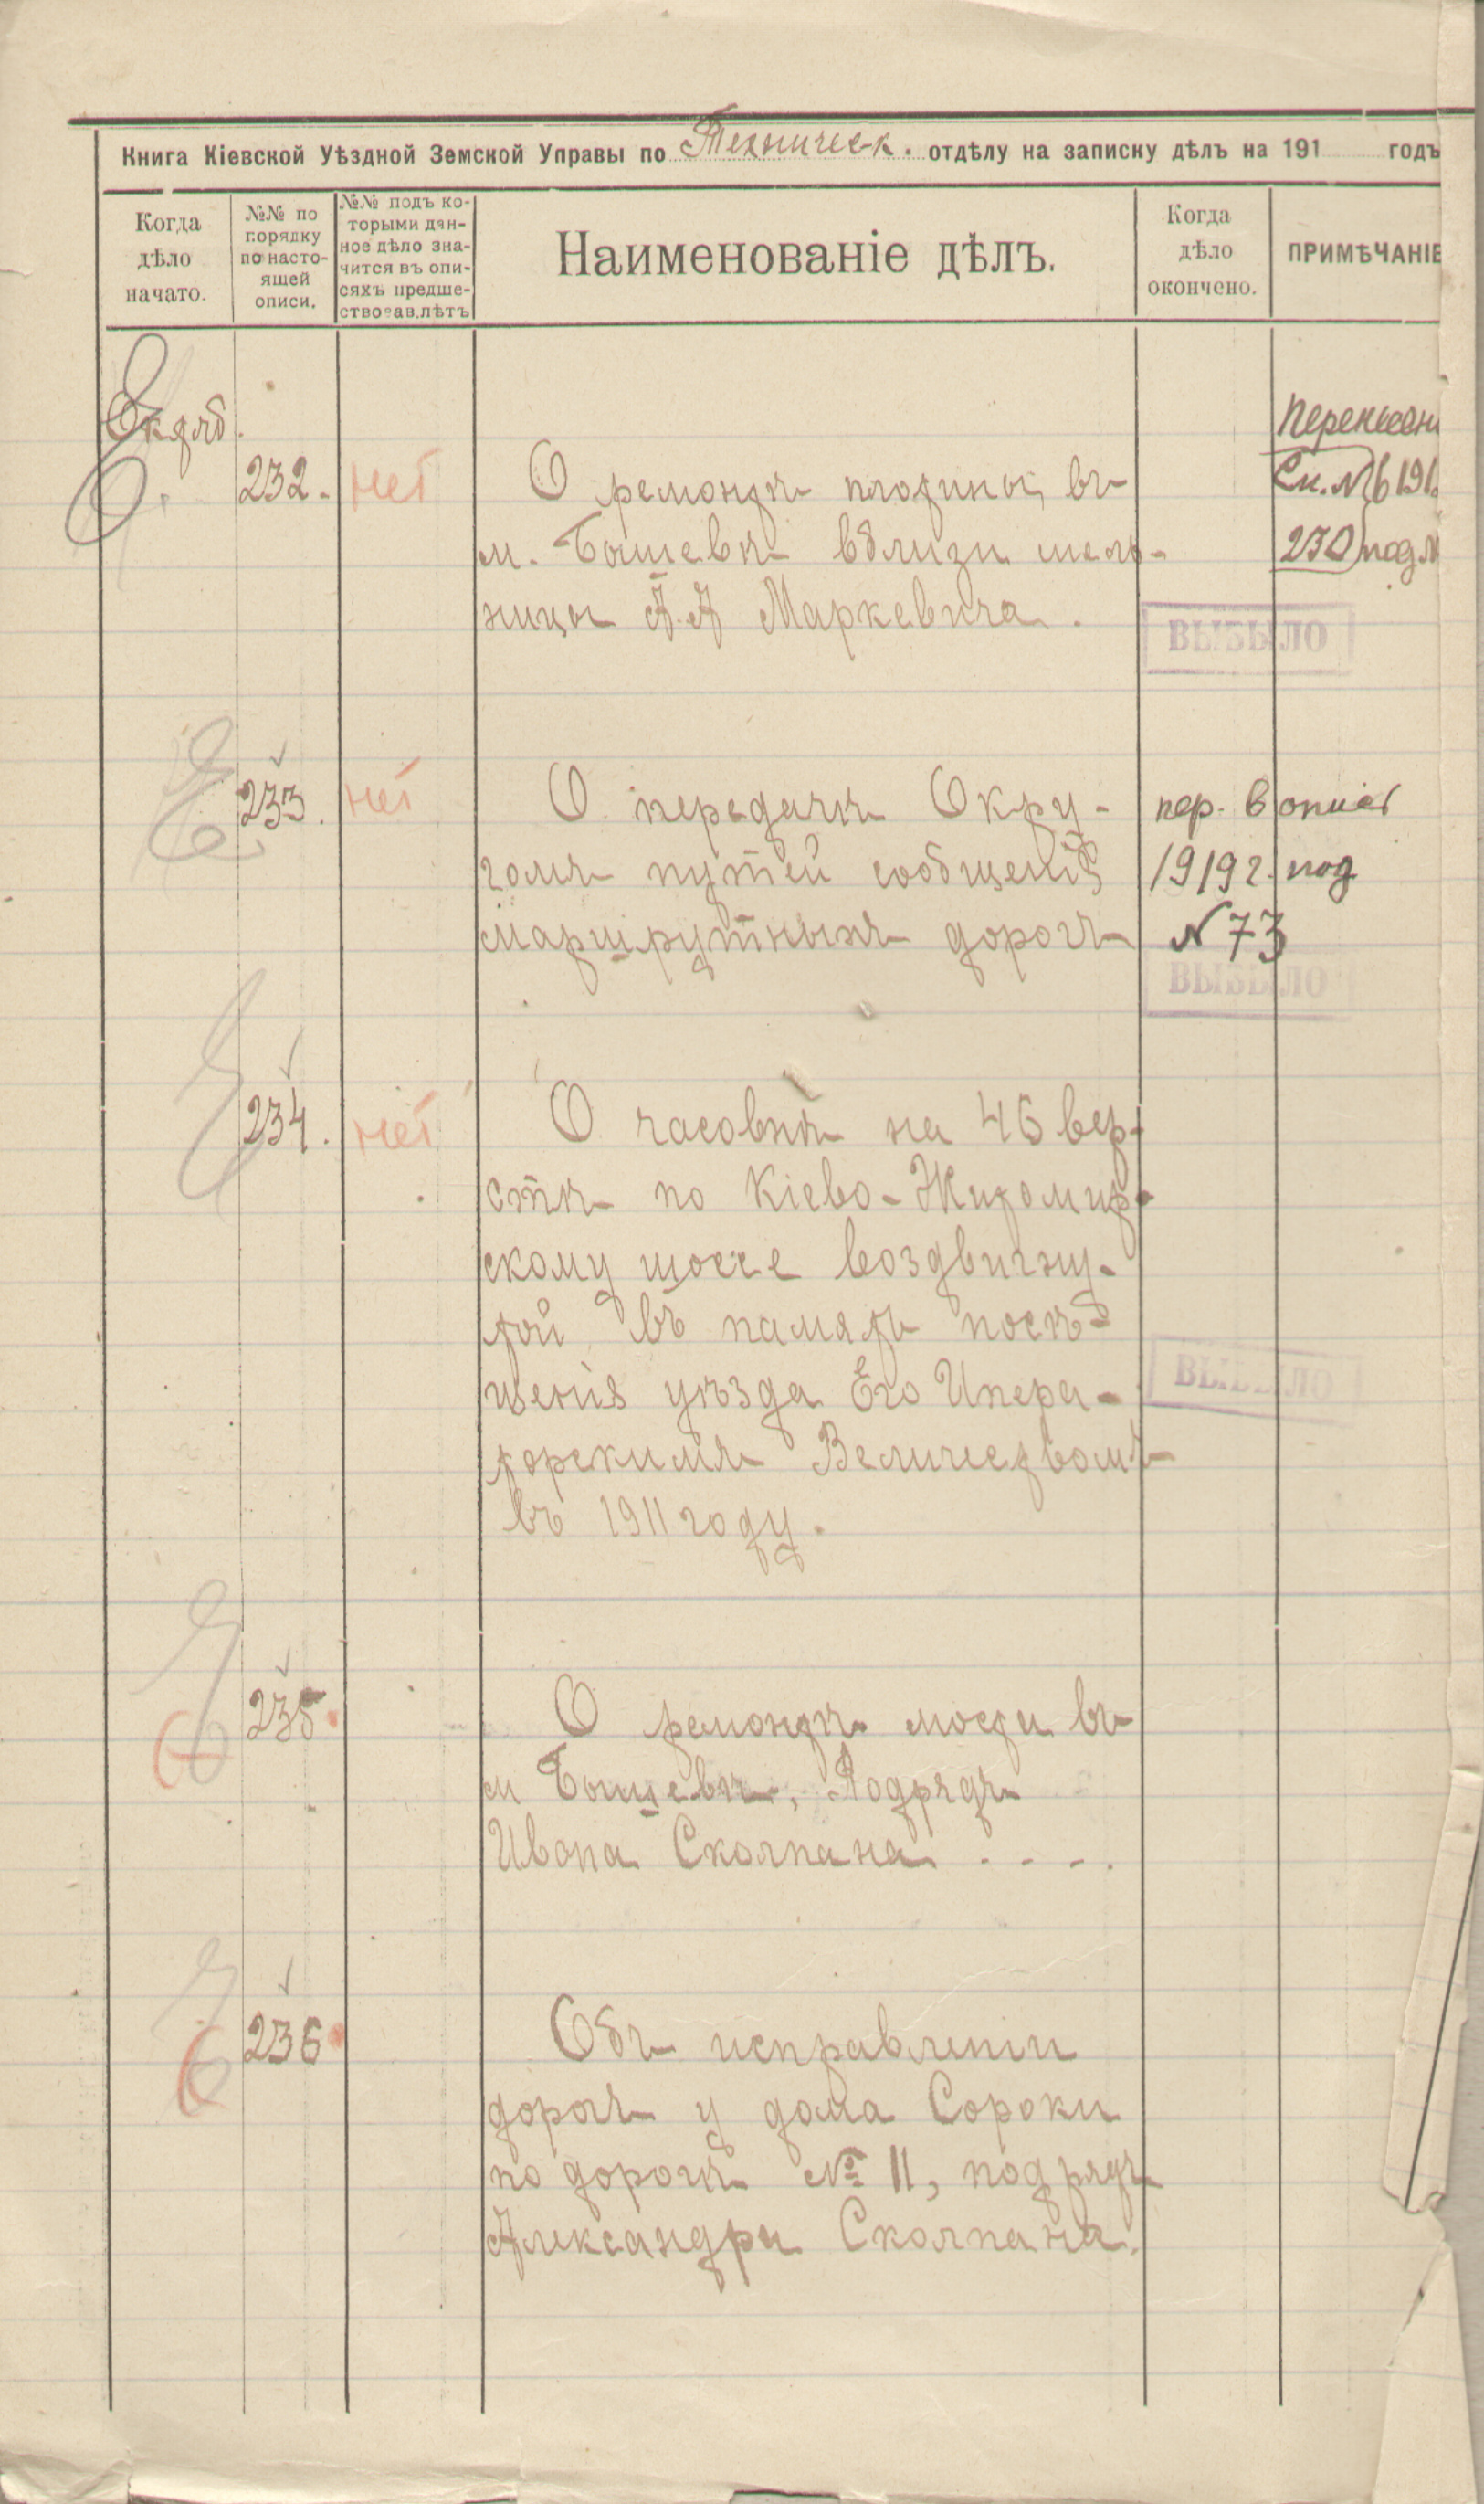 Книга Кіевской Уѣздной Земской Управы по Техническ. отдѣлу на записку дѣлъ на 191 годъ
Когда
дѣло
начато.
№№ по
порядку
по насто-
ящей
описи.
№№ подъ ко-
торыми дан-
ное дѣло зна-
чится въ опи-
сяхъ предше-
ствовав. лѣтъ
Наименованіе дѣлъ.
Когда
дѣло
окончено.
ПРИМѢЧАНІЕ
Октяб.
232. нет
О ремонтѣ плотины въ
м. Бышевѣ вблизи мель-
ницы А. А Маркевича.
См. №
230 под №
ВЫБЫЛО
233. нет
О передачѣ Окру-
гомъ путей сообщенія
маршрутныхъ дорогъ
пер. в опись
1919 г. под
N 73
ВЫБЫЛО
234. нет
О часовнѣ на 46 вер-
стѣ по Кіево-Житомир-
скому шоссе воздвигну-
той въ память посѣ-
щенія уѣзда Его Импера-
торскимъ Величествомъ
въ 1911 году.
ВЫБЫЛО
235.
О ремонтѣ моста въ
м Бышевѣ, Подрядъ
Ивана Сколпана . - - .
236
Объ исправленіи
дорогъ у дома Сороки
по дорогѣ № 11, подрядъ
Александра Сколпана.